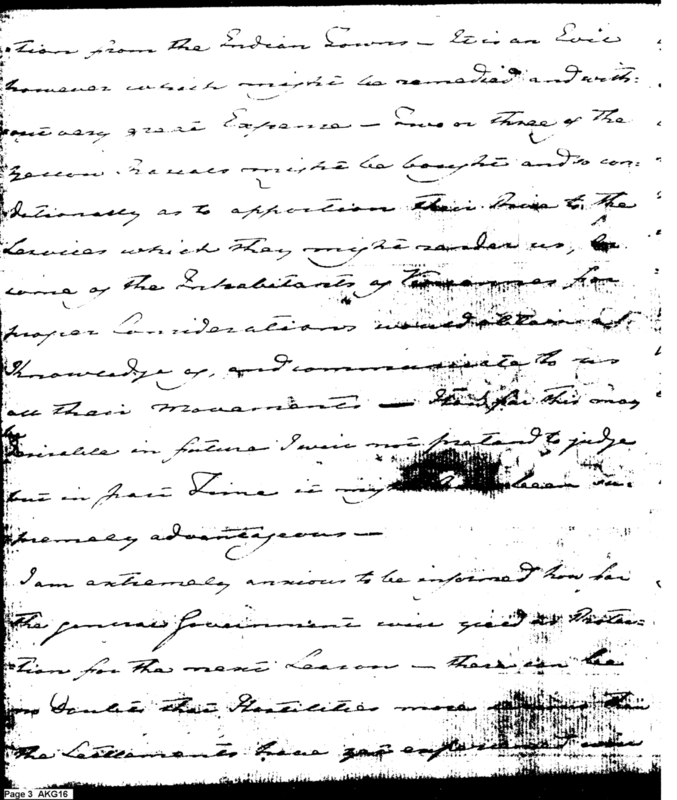 -tion from the Indian Towns — It is an Evil
however which might be remedied and with-
out very great Expense — Two or three of the
might be bought and so con-
ditionally as to apportion their Price to the
Services which they might render us, or
some of the Inhabitants of Vincennes for
proper Considerations would obtain a
Knowledge of, and communicate to us
all their Movements — How far this may
desirable in future I will not pretend to judge
but in past Time it might have been su-
premely advantageous —
I am extremely anxious to be informed how far
the general Government will yield us Protec-
tion for the next Season — there can be
no Doubts that Hostilities more serious than
the Settlements have yet experienced will
Page 3 AKG16